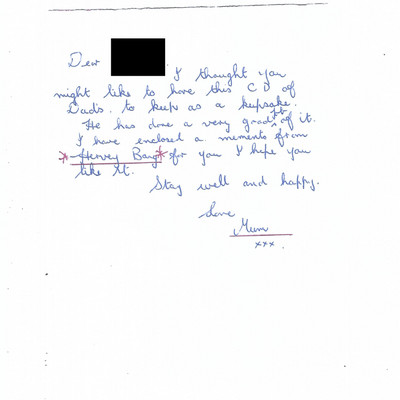 Dear
I thought you
might like to have this CD of
Dad's. to keep as a keepsake.
He has done a very good of it.
I have enclosed a memento from
*Hervey Bay* for you I hope you
like it.
Stay well and happy.
Love
Mum
xxx